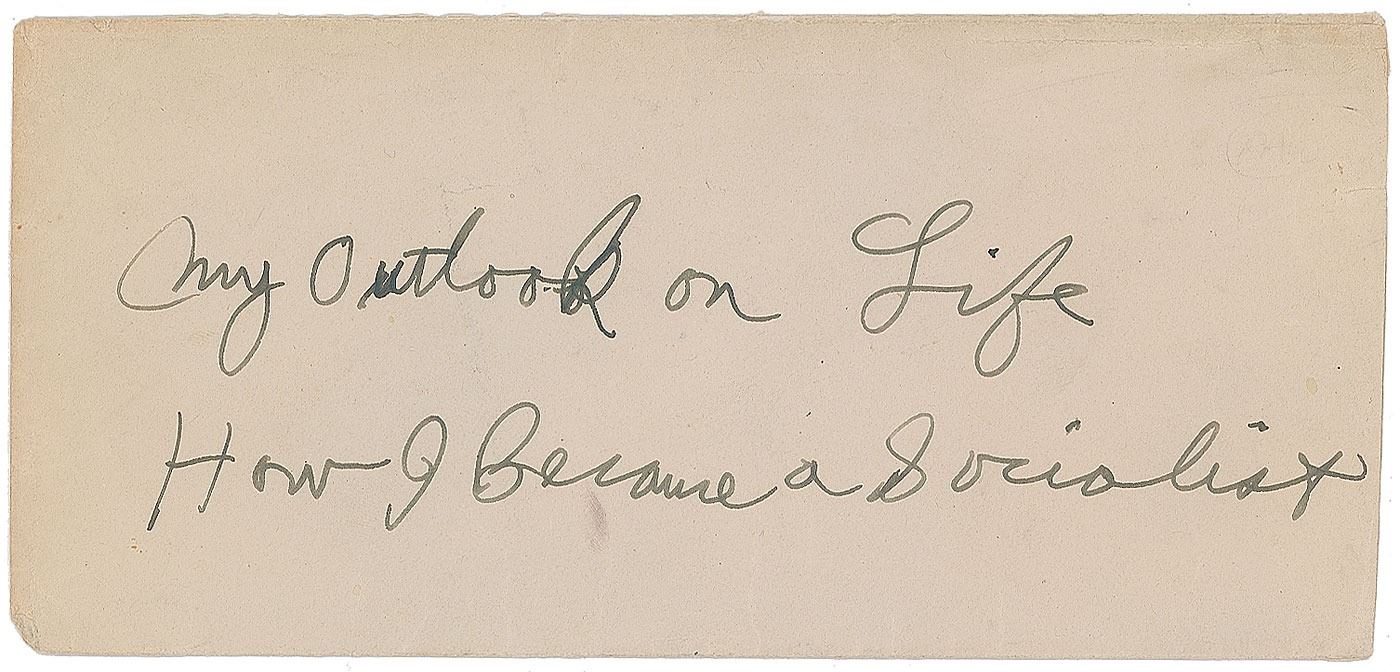 My Outlook on Life
How I Became a Socialist